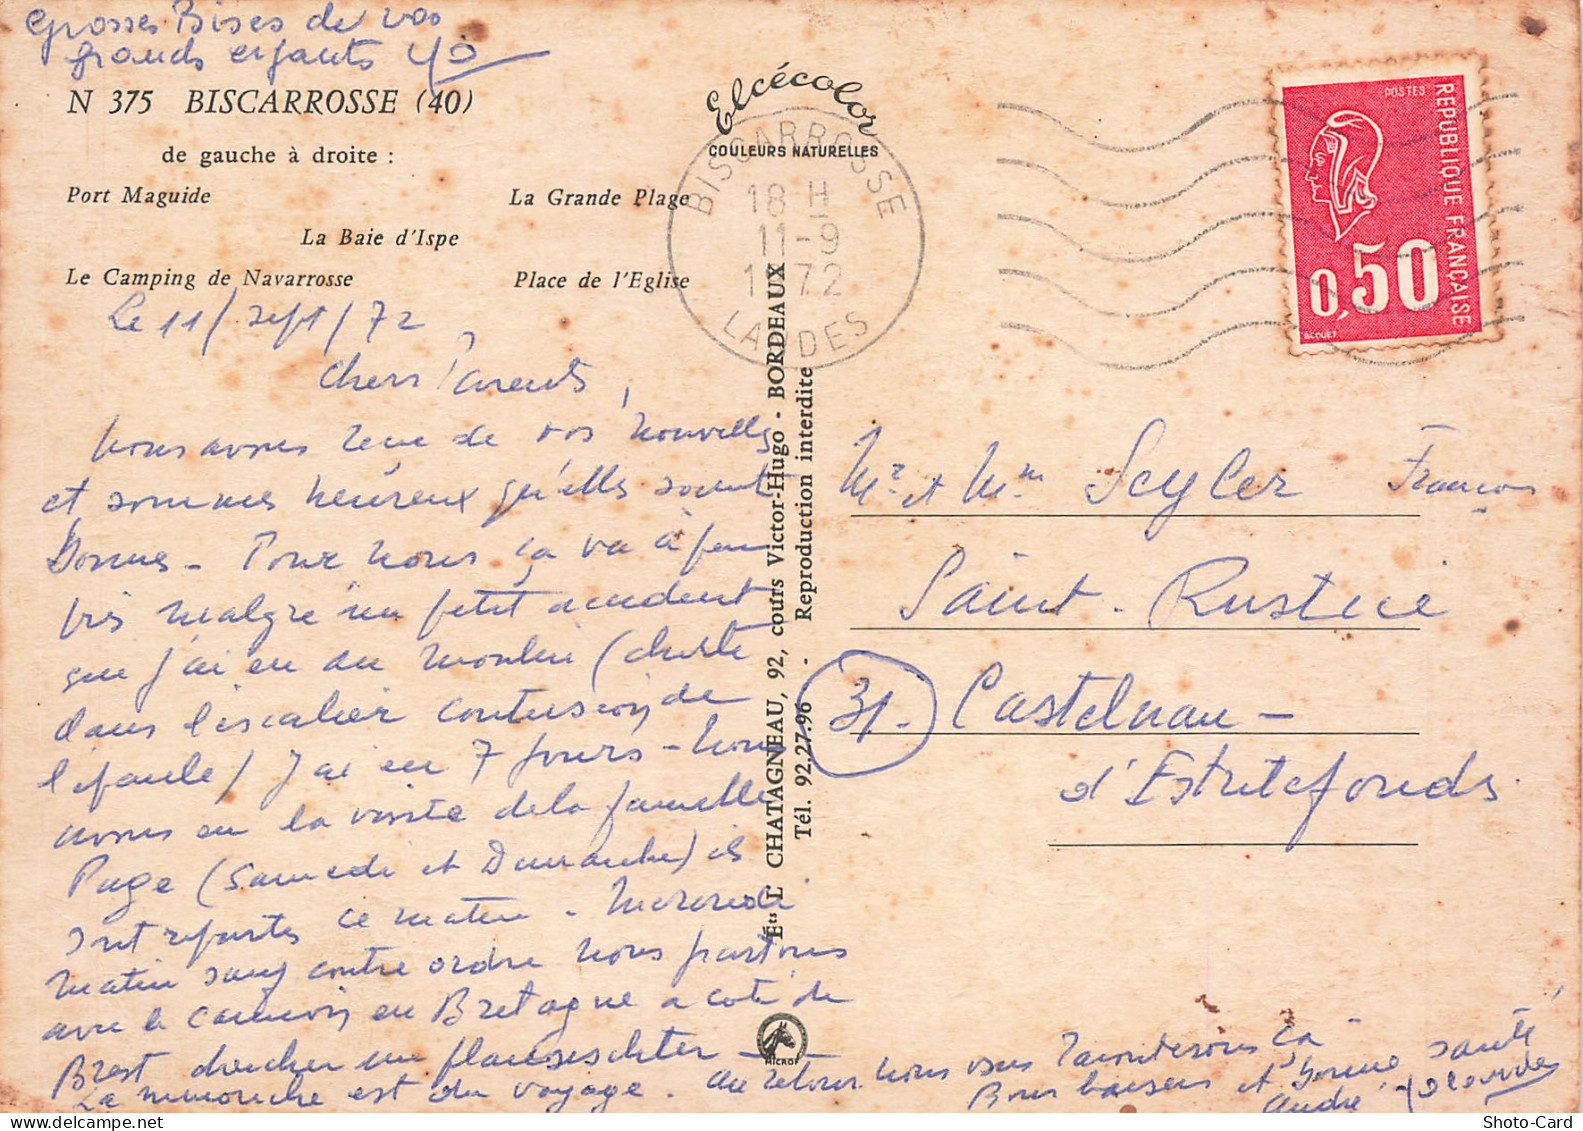 Grosses Bises de vos
grands enfants
N 375 BISCARROSSE (40)
de gauche à droite :
Port Maguide
La Grande Plage
La Baie d'Ispe
Le Camping de Navarrosse
Place de l'Eglise
Elcécolor
COULEURS NATURELLES
BISCARROSSE
18 H
11-9
1972
LANDES
POSTES
REPUBLIQUE FRANÇAISE
0,50
BEQUET
Le 11/sept/72
Chers Parents,
Nous avons reçu de vos nouvelles
et sommes heureux qu'elles soient
Bonnes - Pour nous ça va à peu
près malgré un petit accident
que j'ai eu au moulin (chute
dans l'escalier contusion de
l'épaule) j'ai eu 7 jours - Nous
avons eu la visite de la famille
Page (Samedi et Dimanche) ils
sont repartis ce matin - Mercredi
matin sauf contre ordre nous partons
avec le camion en Bretagne a coté de
Brest chercher un
La est du voyage. Au retour nous vous raconterons ça
Bons baisers et bonne santé
André
Éts L. CHATAGNEAU, 92, cours Victor-Hugo - BORDEAUX
Tél. 92.27.96 - Reproduction interdite
MICROF
Mr et Mme Seyler François
Saint-Rustice
31. Castelnau-
d'Estretefonds.
Shoto-Card